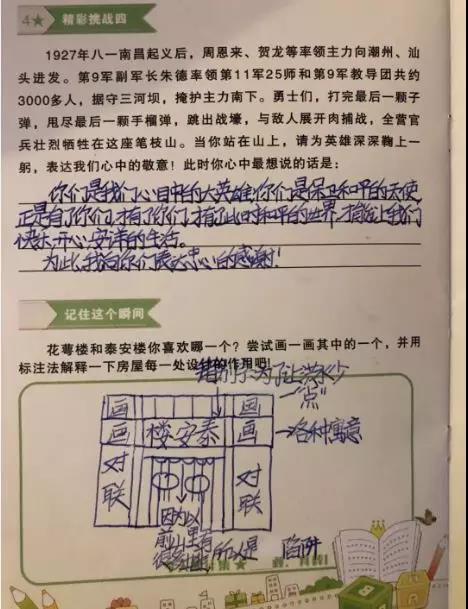 4★ 精彩挑战四
1927年八一南昌起义后，周恩来、贺龙等率领主力向潮州、汕
头进发。第9军副军长朱德率领第11军25师和第9军教导团共约
3000多人，据守三河坝，掩护主力南下。勇士们，打完最后一颗子
弹，甩尽最后一颗手榴弹，跳出战壕，与敌人展开肉搏战，全营官
兵壮烈牺牲在这座笔枝山。当你站在山上，请为英雄深深鞠上一
躬，表达我们心中的敬意！此时你心中最想说的话是：
你们是我们心目中的大英雄,你们是保卫和平的天使,
正是有了你们,才有了此时和平的世界,才能让我们
快乐、开心、安详的生活。
为此,我向你们表达忠心的感谢!
记住这个瞬间
花萼楼和泰安楼你喜欢哪一个？尝试画一画其中的一个，并用
标注法解释一下房屋每一处设计的作用吧！
错别字为了让洪水少
一"点"
画 画
画 楼安泰 画 →各种寓意
对联 对联
因为以
前山里有
很多
所以是 陷阱